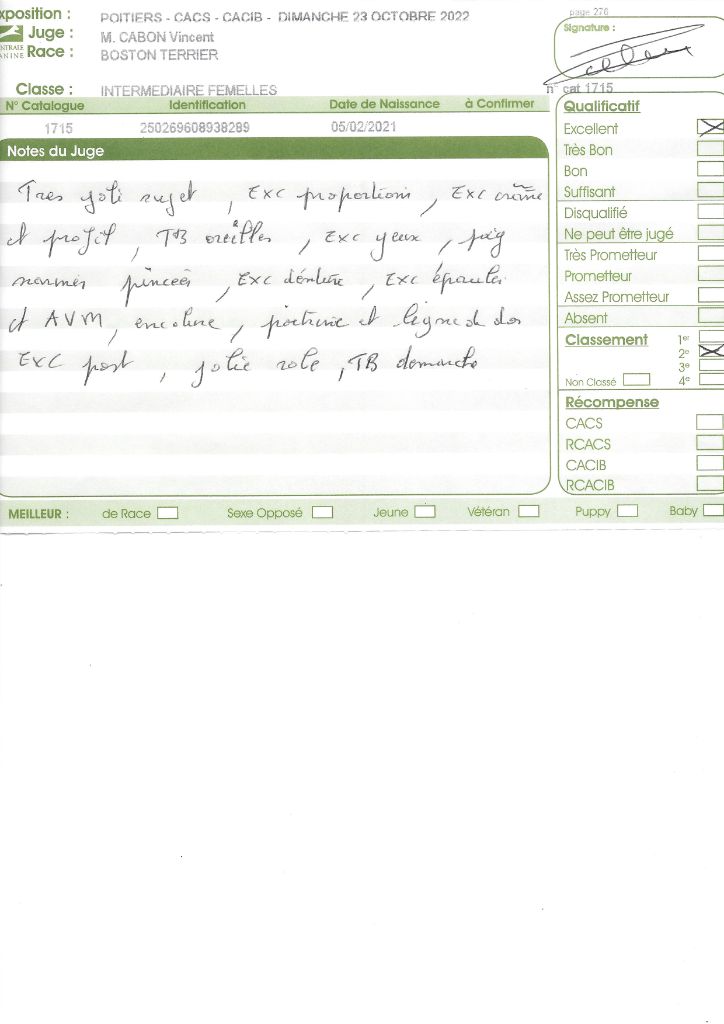 xposition : POITIERS - CACS - CACIB - DIMANCHE 23 OCTOBRE 2022
page 276
Juge : M. CABON Vincent
Signature :
NTRALE
ANINE
Race : BOSTON TERRIER
Classe : INTERMEDIAIRE FEMELLES
n° cat 1715
N° Catalogue Identification Date de Naissance à Confirmer
1715 250269608938289 05/02/2021
Notes du Juge
Tres joli sujet, Exc proportions, Exc crâne
et profil, TB oreilles, Exc yeux,
narines pincées, Exc denture, Exc épaules
et AVM, encolure, poitrine et ligne de dos
Exc post, jolie robe, TB démarche
Qualificatif
Excellent
Très Bon
Bon
Suffisant
Disqualifié
Ne peut être jugé
Très Prometteur
Prometteur
Assez Prometteur
Absent
Classement 1er
2e
3e
Non Classé 4e
Récompense
CACS
RCACS
CACIB
RCACIB
MEILLEUR : de Race Sexe Opposé Jeune Vétéran Puppy Baby